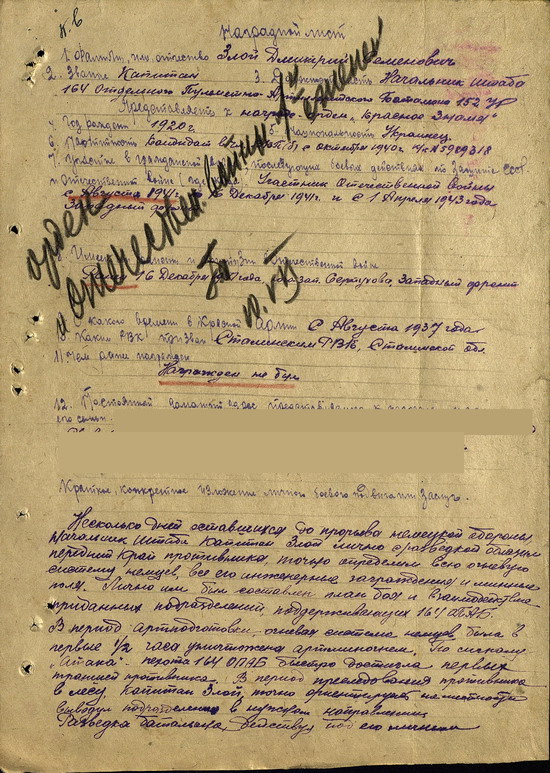 Наградной лист
1. Фамилия, имя, отчество Злой Дмитрий Семенович
2. Звание Капитан 3. Должность, часть Начальник штаба
164 Отдельного Пулеметно-Артиллерийского Батальона 152 УР
Представляется к награде Орден „Красное Знамя"
4. Год рождения 1920 г. 5. Национальность Украинец
6. Партийность Кандидат ВКП(б) с октября 1940 г.
7. Участие в гражданской последующих боевых действиях по защите СССР
и отечественной войне Участник Отечественной войны
с Августа 1941 г. Декабрь 1941 г. и с 1 Апреля 1943 года
Западный фронт
8. Имеет ли ранения и контузии в отечественной войне
Ранен 16 Декабря 1941 года, Серпухова, Западный фронт
9. С какого времени в Красной Армии С Августа 1937 года
10. Каким РВК призван Сталинским РВК, Сталинской обл.
11. Чем ранее награжден
Награжден не был
12. Постоянный домашний адрес представляемого к
его семьи
орден
Отечествен войны 1 степени
Краткое, конкретное изложение личного боевого подвига или заслуг.
Несколько дней оставшихся до прорыва немецкой обороны
Начальник Штаба Капитан Злой лично с разведкой облазил
передний край противника, точно определил всю огневую
систему немцев, все его инженерные заграждения и минные
поля. Лично им был составлен план боя и взаимодействия
приданных подразделений, поддерживающих 164 ОПАБ.
В период артподготовки, огневая система немцев была в
первые 1/2 часа уничтожена артминогнем. По сигналу
„Атака" - пехота 164 ОПАБ быстро достигла первых
траншей противника. В период преследования противника
в лесу, Капитан Злой, точно ориентируясь на местности
выводил подразделения в нужном направлении.
Разведка батальона, действуя под его личным